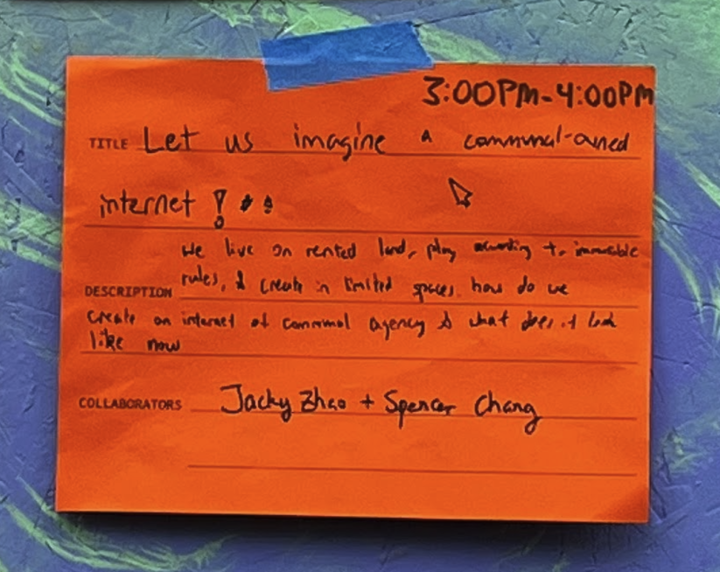 3:00PM-4:00PM
TITLE Let us imagine a communal-owned
internet !!!
we live on rented land, play according to immutable
DESCRIPTION rules, & create in limited spaces. how do we
create an internet of communal agency & what does it look
like now
COLLABORATORS Jacky Zhao + Spencer Chang